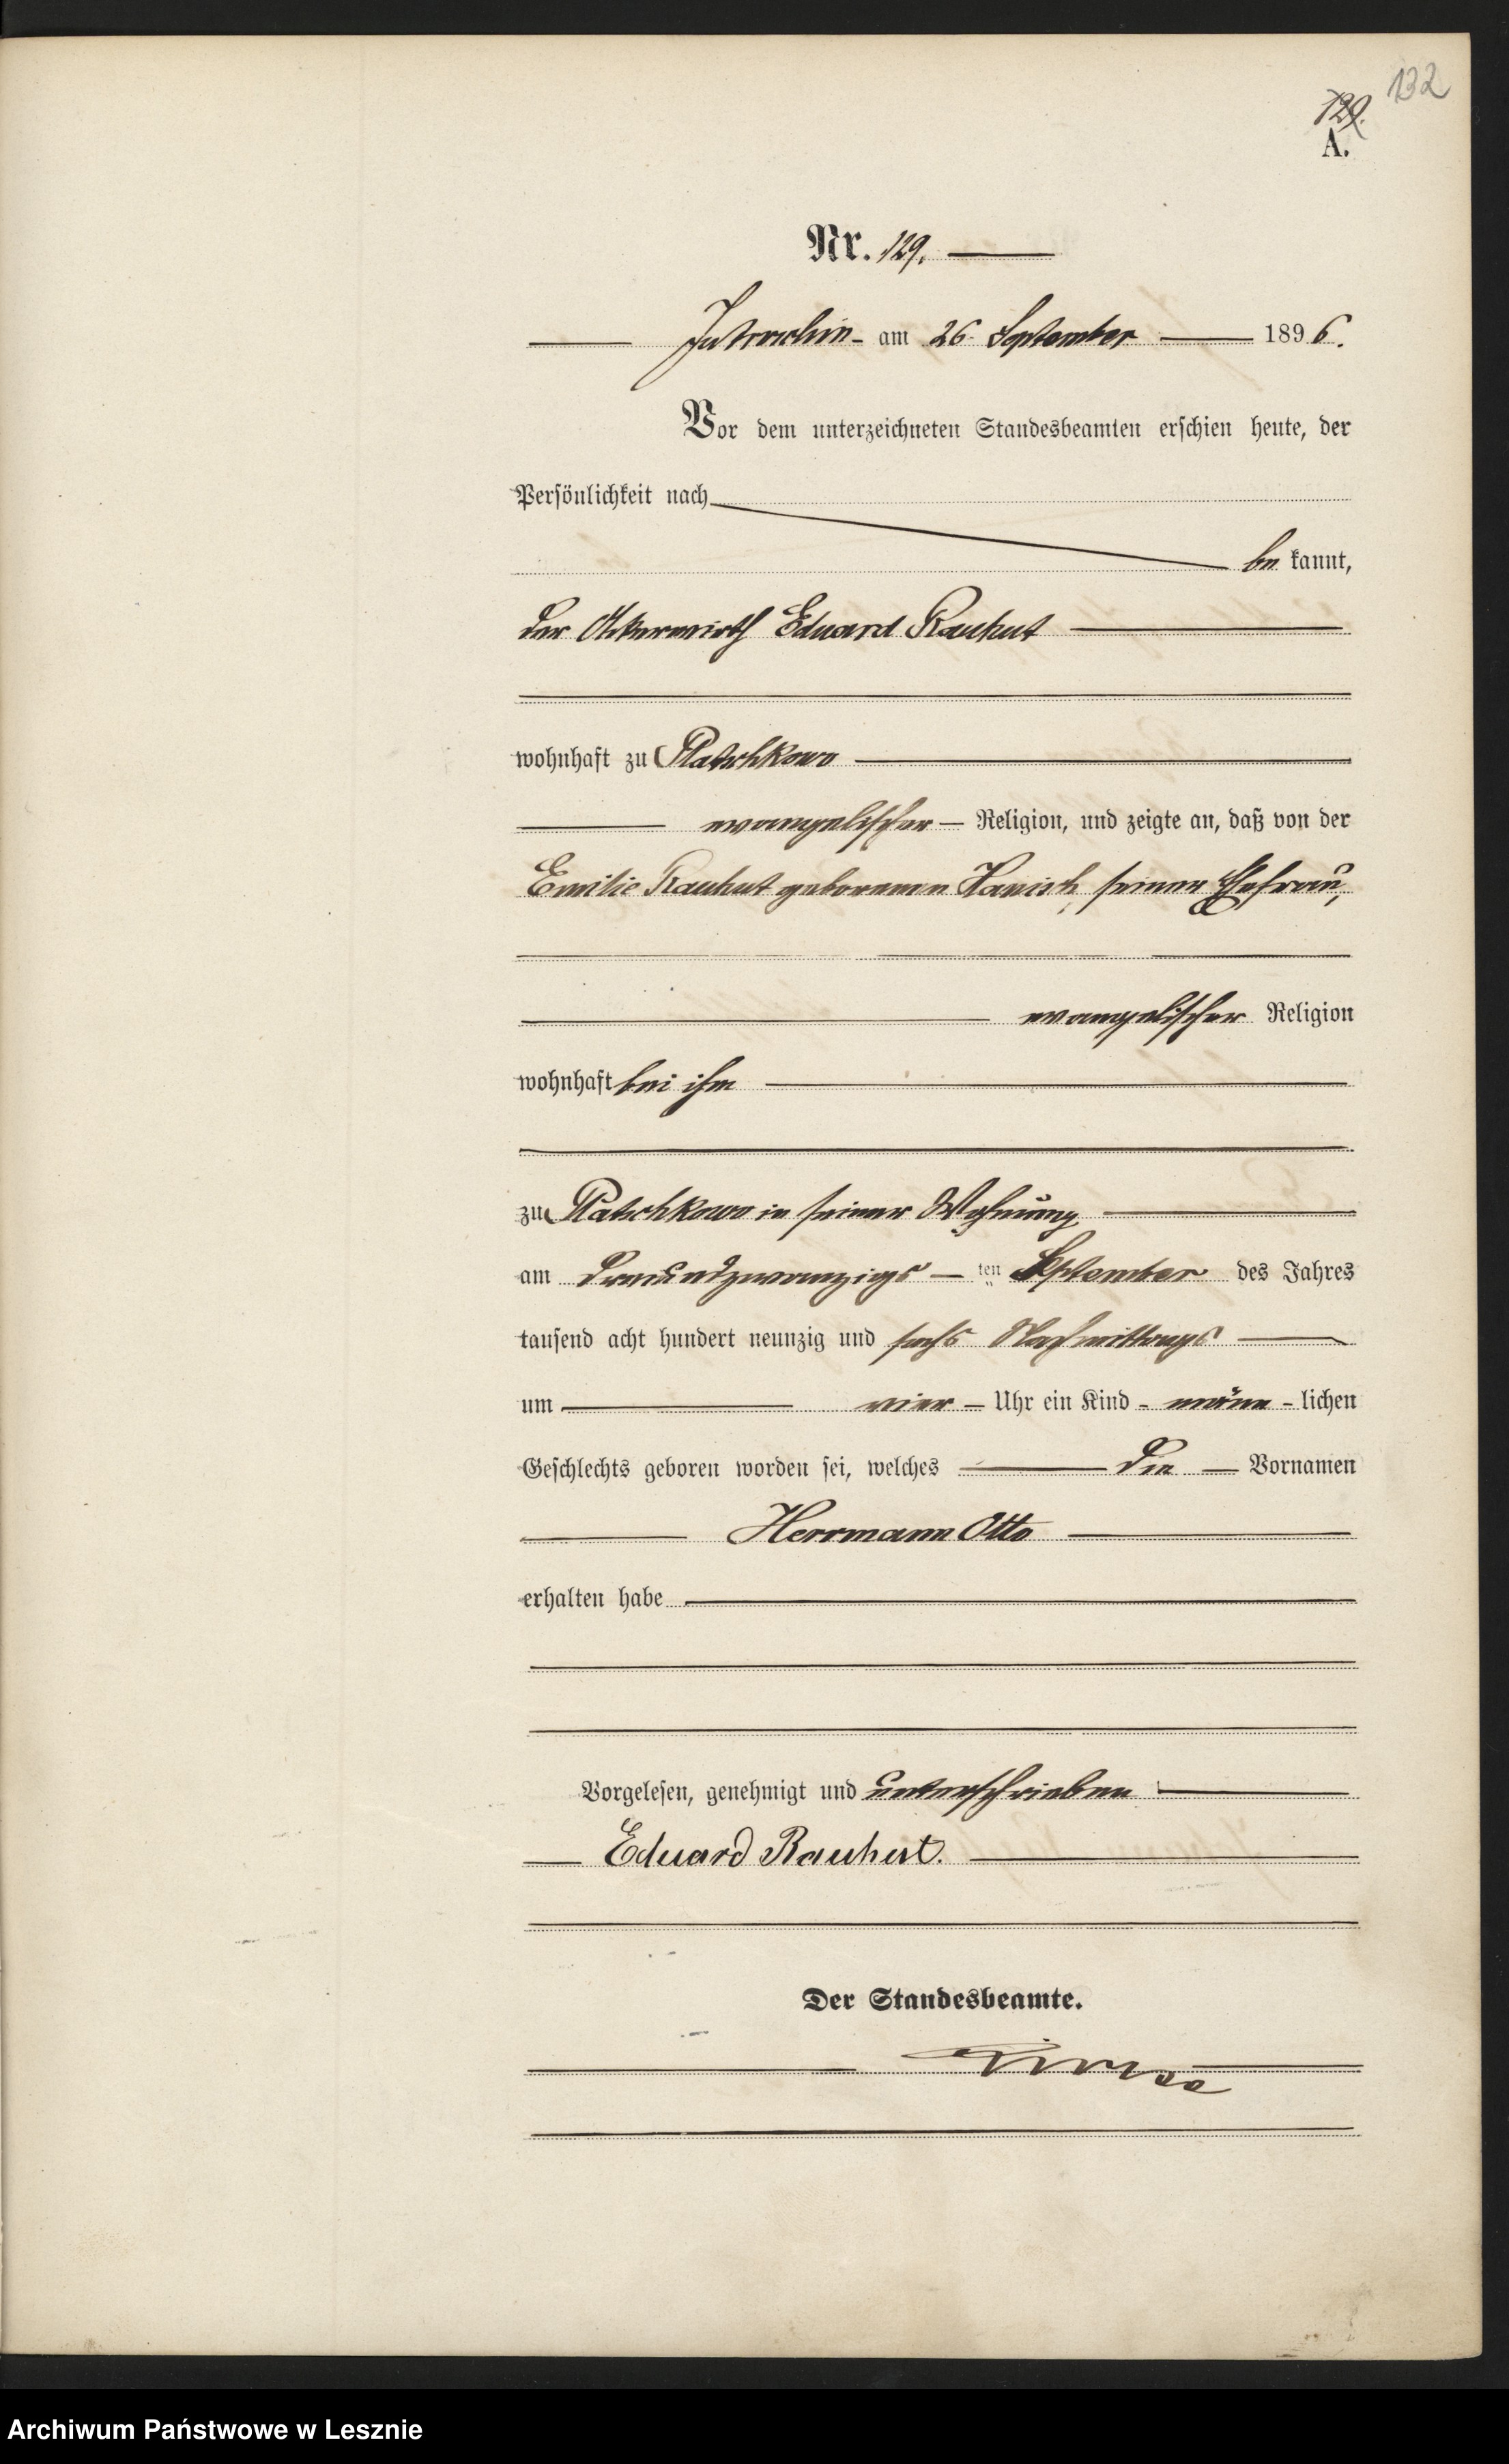 132
129.
A.
Nr. 129.
Jutroschin am 26. September 1896.
Vor dem unterzeichneten Standesbeamten erschien heute, der
Persönlichkeit nach
be kannt,
der Ackerwirth Eduard Rauhut
wohnhaft zu Platschkowo
evangelischer Religion, und zeigte an, daß von der
Emilie Rauhut geborenen Hanisch, seiner Ehefrau,
evangelischer Religion
wohnhaft bei ihm
zu Platschkowo in seiner Wohnung
am dreiundzwanzigs ten September des Jahres
tausend acht hundert neunzig und sechs Nachmittags
um vier Uhr ein Kind männ lichen
Geschlechts geboren worden sei, welches die Vornamen
Herrmann Otto
erhalten habe
Vorgelesen, genehmigt und unterschrieben
Eduard Rauhut.
Der Standesbeamte.
Archiwum Państwowe w Lesznie